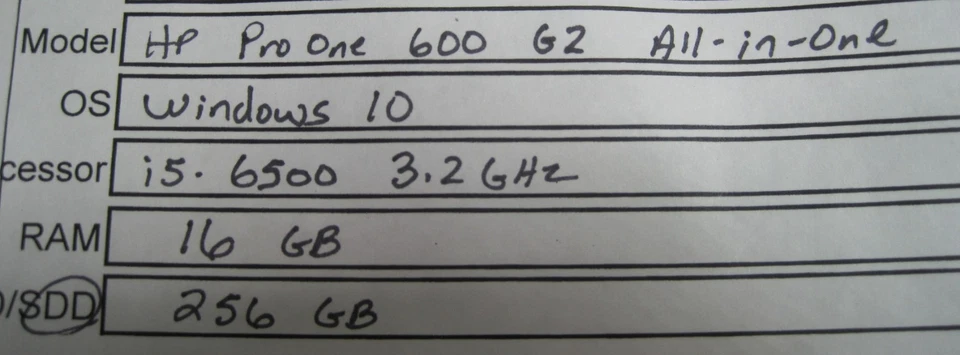 Model HP Pro One 600 G2 All-in-One
OS Windows 10
cessor i5. 6500 3.2 GHz
RAM 16 GB
/SDD 256 GB